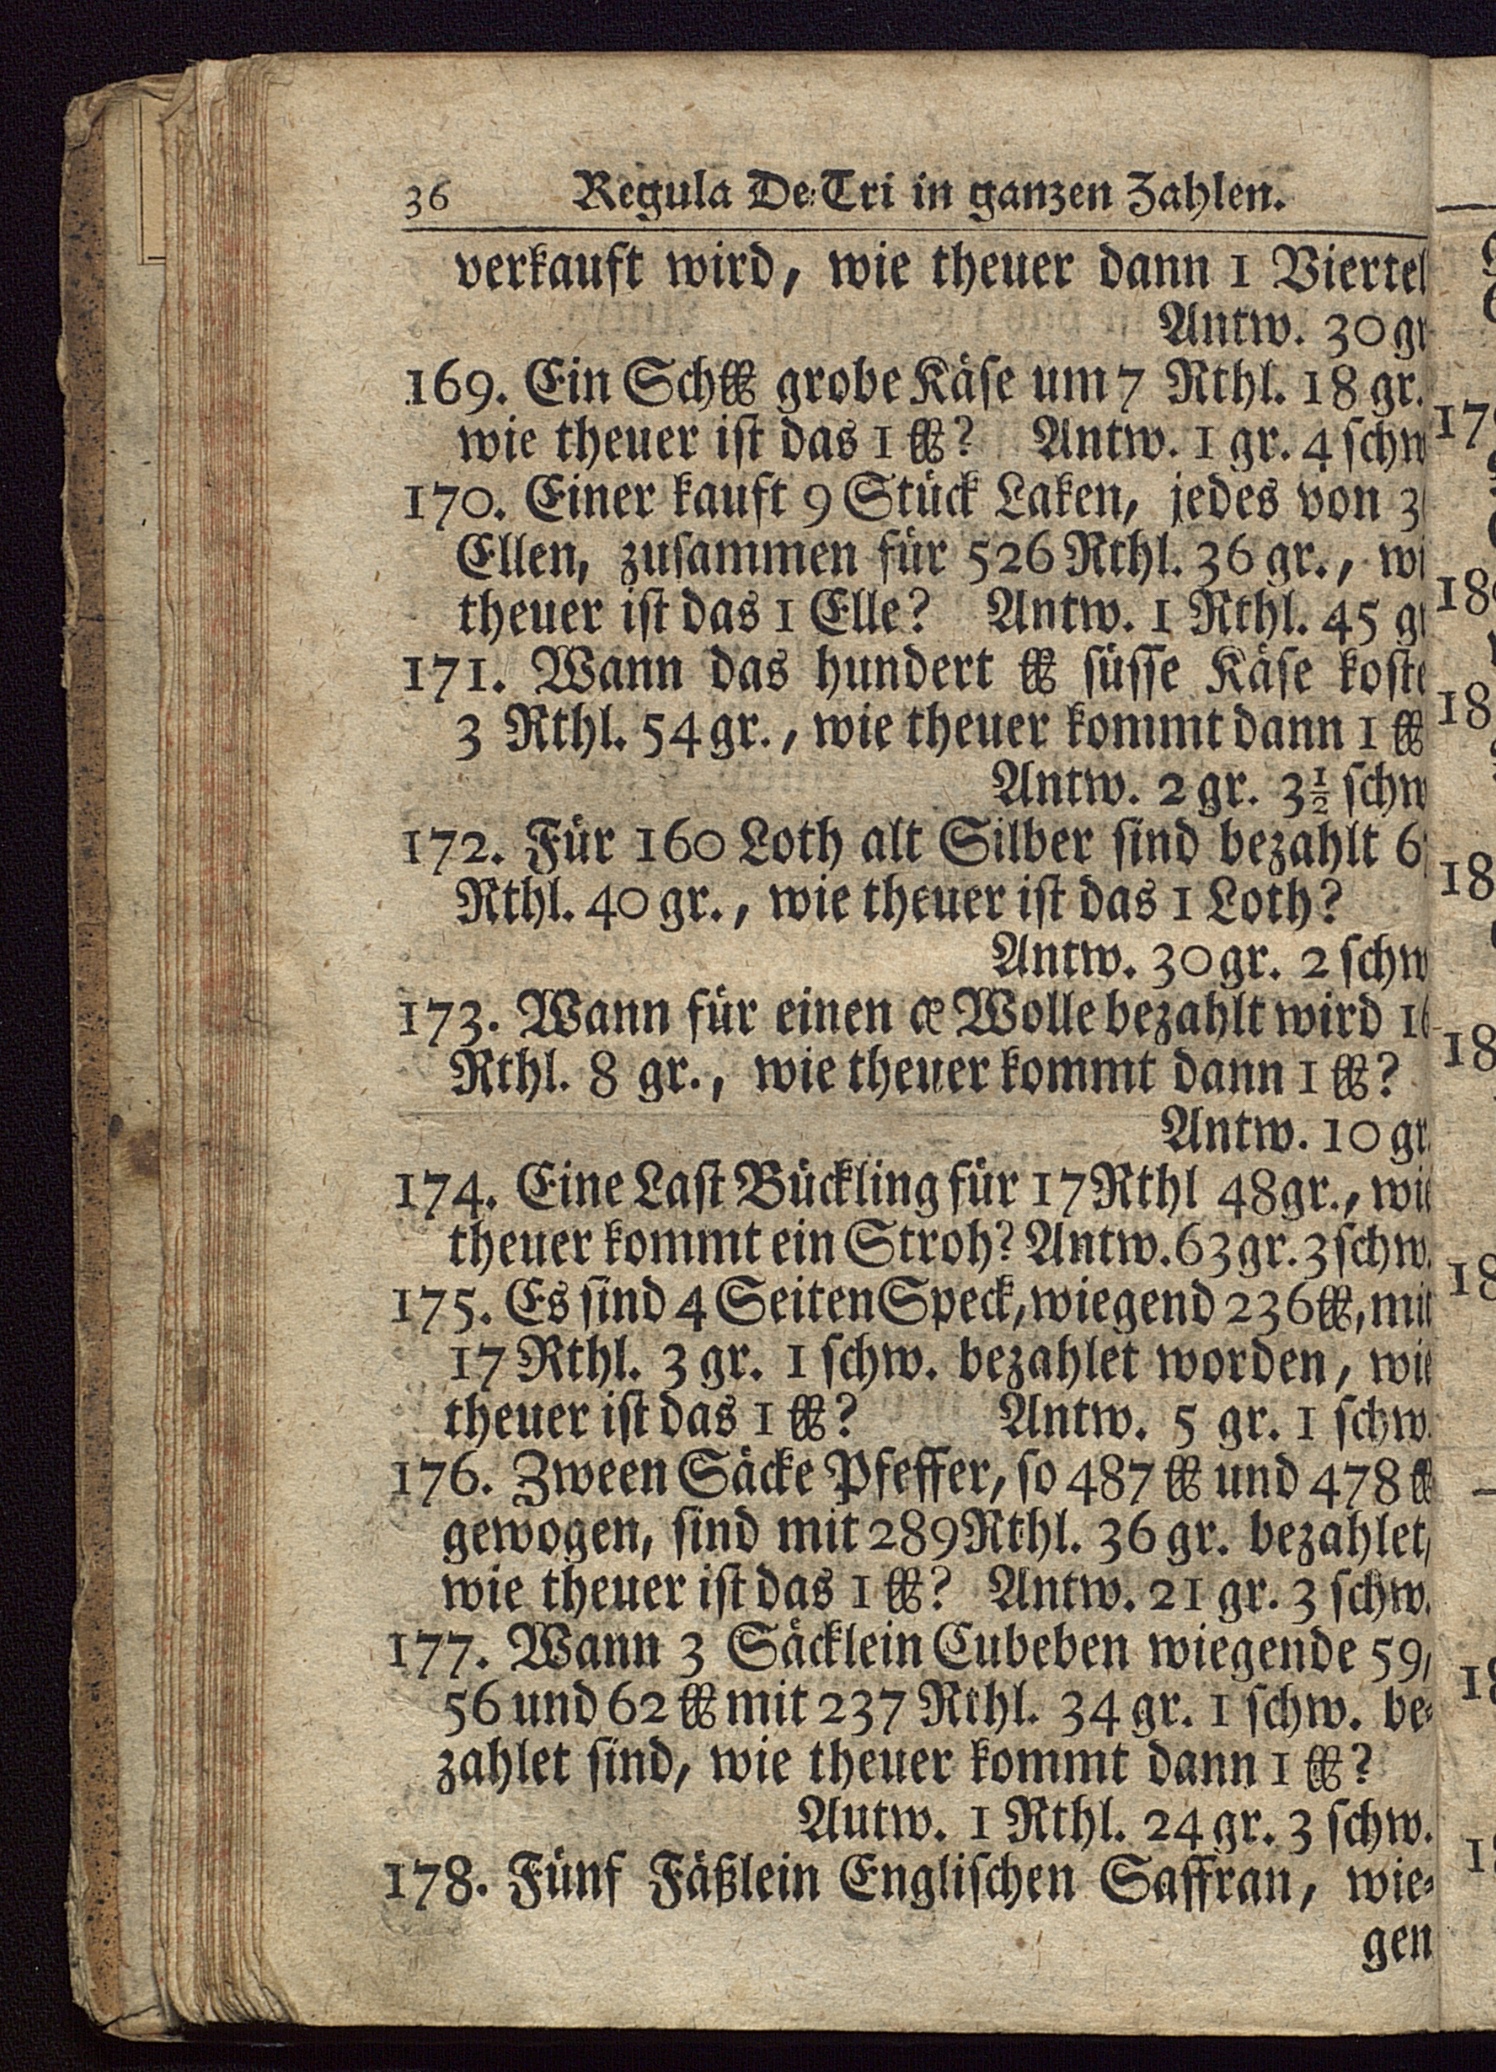 36 Regula De-Tri in ganzen Zahlen.
verkauft wird, wie theuer dann 1 Viertel
Antw. 30 gr
169. Ein Sch℔ grobe Käse um 7 Rthl. 18 gr.
wie theuer ist das 1 ℔? Antw. 1 gr. 4 schw
170. Einer kauft 9 Stück Laken, jedes von 3
Ellen, zusammen für 526 Rthl. 36 gr., wi
theuer ist das 1 Elle? Antw. 1 Rthl. 45 gr
171. Wann das hundert ℔ süsse Käse koste
3 Rthl. 54 gr., wie theuer kommt dann 1 ℔
Antw. 2 gr. 3½ schw
172. Für 160 Loth alt Silber sind bezahlt 6
Rthl. 40 gr., wie theuer ist das 1 Loth?
Antw. 30 gr. 2 schw
173. Wann für einen æ Wolle bezahlt wird 16
Rthl. 8 gr., wie theuer kommt dann 1 ℔?
Antw. 10 gr.
174. Eine Last Bückling für 17 Rthl 48 gr., wie
theuer kommt ein Stroh? Antw. 63 gr. 3 schw.
175. Es sind 4 Seiten Speck, wiegend 236 ℔, mit
17 Rthl. 3 gr. 1 schw. bezahlet worden, wie
theuer ist das 1 ℔? Antw. 5 gr. 1 schw.
176. Zween Säcke Pfeffer, so 487 ℔ und 478 ℔
gewogen, sind mit 289 Rthl. 36 gr. bezahlet,
wie theuer ist das 1 ℔? Antw. 21 gr. 3 schw.
177. Wann 3 Säcklein Cubeben wiegende 59,
56 und 62 ℔ mit 237 Rthl. 34 gr. 1 schw. be-
zahlet sind, wie theuer kommt dann 1 ℔?
Autw. 1 Rthl. 24 gr. 3 schw.
178. Fünf Fäßlein Englischen Saffran, wie-
gen